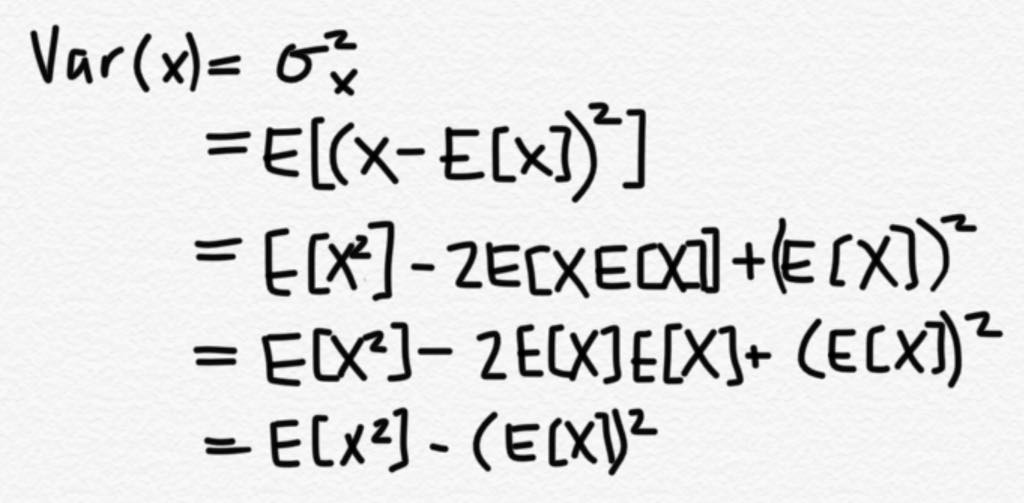 Var(x) = σ²ₓ
= E[(x - E[x])²]
= E[X²] - 2E[XE[X]] + (E[X])²
= E[X²] - 2E[X]E[X] + (E[X])²
= E[X²] - (E[X])²